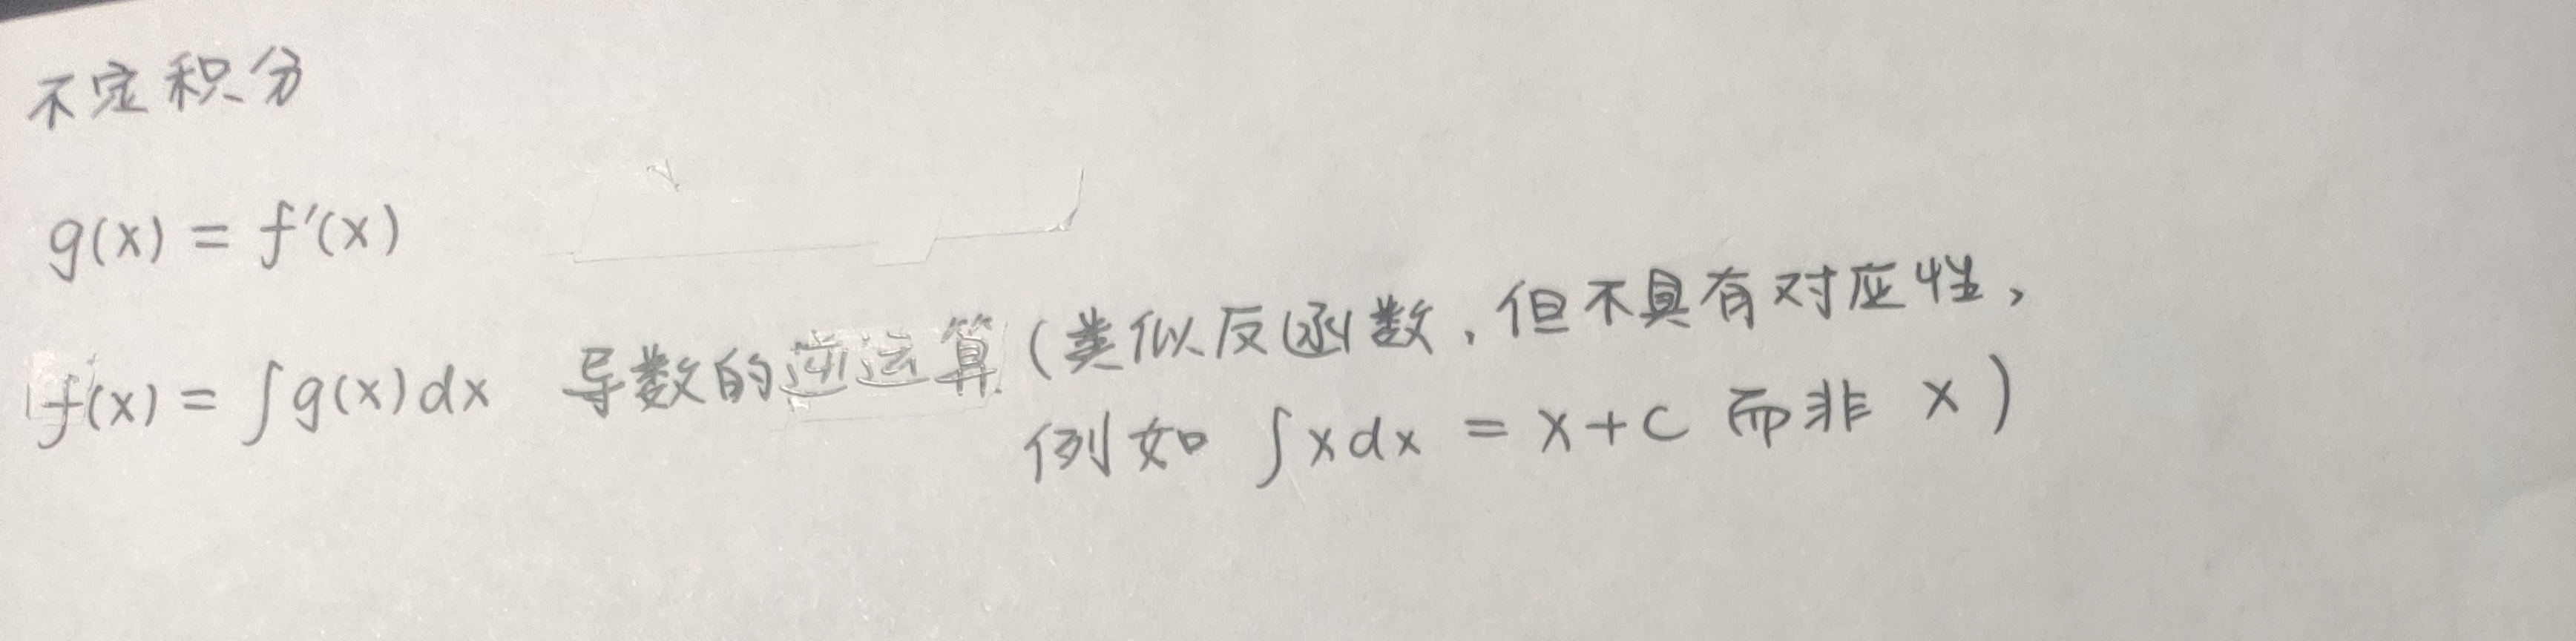 不定积分
g(x) = f'(x)
f(x) = ∫g(x)dx 导数的逆运算(类似反函数,但不具有对应性,
例如 ∫xdx = x+C 而非 x)